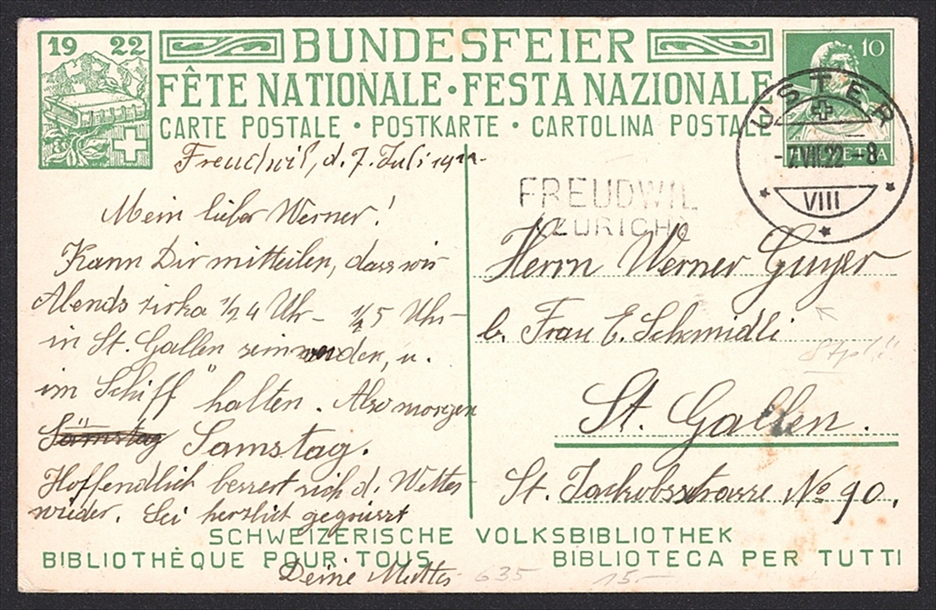 1922
BUNDESFEIER
FÊTE NATIONALE · FESTA NAZIONALE
CARTE POSTALE · POSTKARTE · CARTOLINA POSTALE
10
HELVETIA
USTER
-7.VII.22-8
VIII
FREUDWIL
(ZÜRICH)
Freudwil, d. 7. Juli 1922.
Mein lieber Werner!
Kann Dir mitteilen, dass wir
Abends zirka ½ 4 Uhr – ½ 5 Uhr –
in St. Gallen sein werden, u.
im Schiff" halten. Also morgen
Samstag.
Hoffendlich bessert sich d. Wetter
wieder. Sei herzlich gegrüsst
Deine Mutter
Herrn Werner Gujer
b. Frau E. Schmidli
St. Gallen.
St. Jackobsstrasse No 90.
SCHWEIZERISCHE VOLKSBIBLIOTHEK
BIBLIOTHÈQUE POUR TOUS BIBLIOTECA PER TUTTI
635 15.-